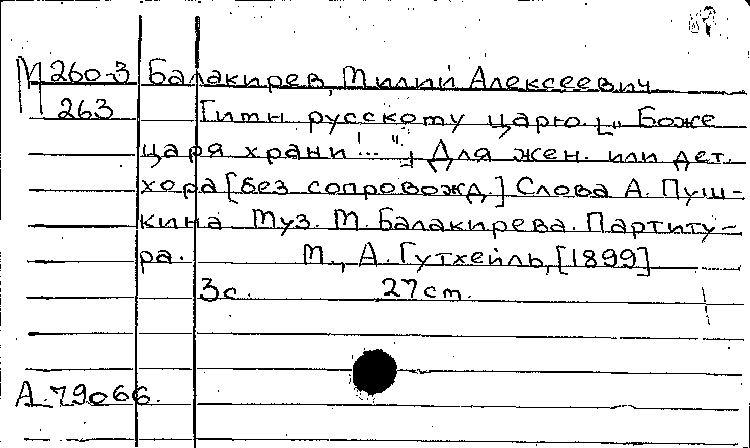 М 260-3 Балакирев, Милий Алексеевич
263 Гимн русскому царю. [„Боже
царя храни!..."] Для жен. или дет.
хора [без сопровожд.] Слова А. Пуш-
кина Муз. М. Балакирева. Партиту-
ра. М., А. Гутхейль, [1899]
3с. 27см.
А.79066.